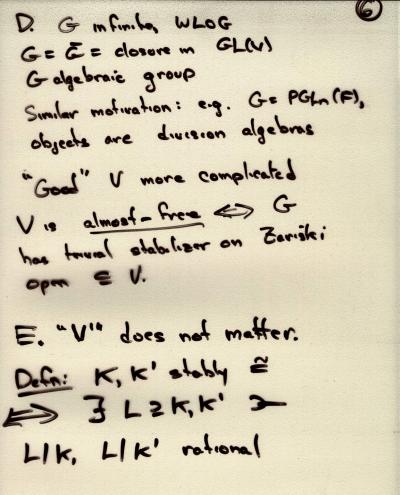 ⑥
D. G infinite, WLOG
G = G̅ = closure in GL(V)
G algebraic group
Similar motivation: e.g. G = PGLn(F),
objects are division algebras
"Good" V more complicated
V is almost-free ⟺ G
has trivial stabilizer on Zariski
open ⊆ V.
E. "V" does not matter.
Defn: K, K' stably ≅
⟺ ∃ L ⊇ K, K' ∋
L/K, L/K' rational